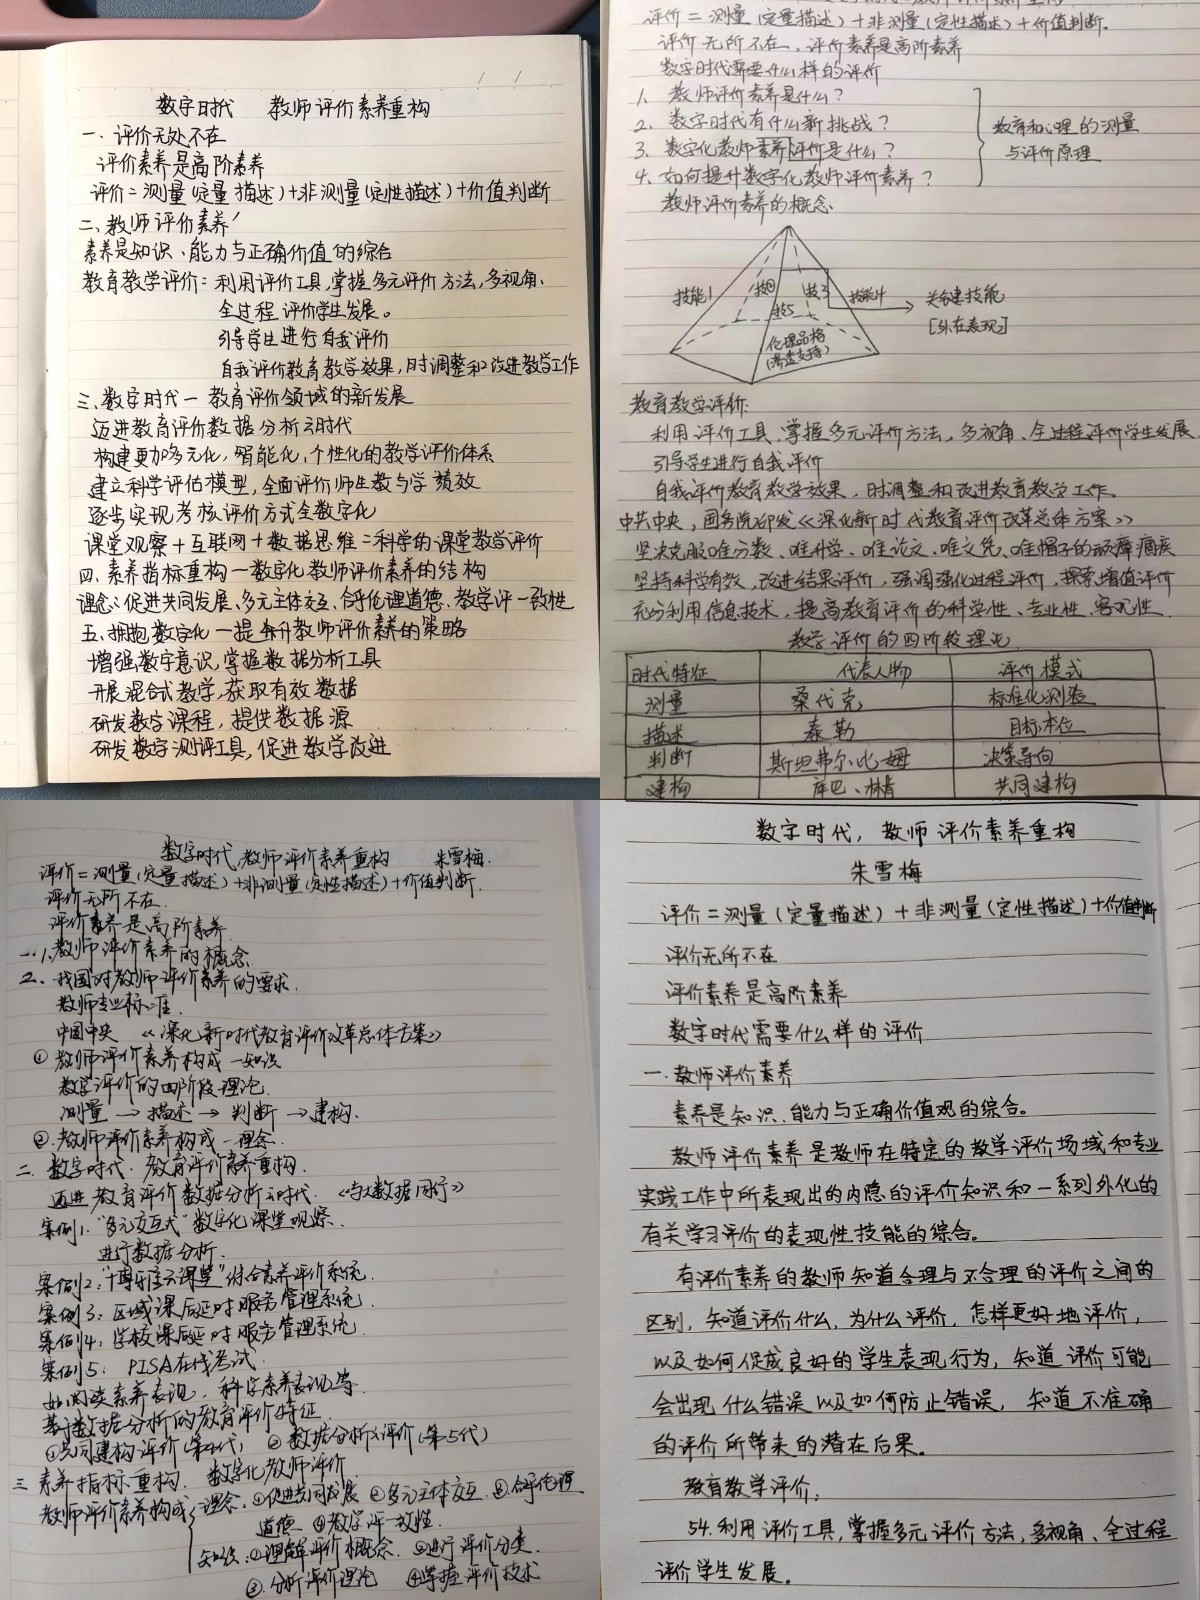 数字时代 教师评价素养重构
一、评价无处不在
评价素养是高阶素养
评价=测量(定量描述)+非测量(定性描述)+价值判断
二、教师评价素养
素养是知识、能力与正确价值的综合
教育教学评价:利用评价工具,掌握多元评价方法,多视角、
全过程评价学生发展。
引导学生进行自我评价
自我评价教育教学效果,时调整和改进教学工作
三、数字时代一教育评价领域的新发展
迈进教育评价数据分析云时代
构建更加多元化,智能化,个性化的教学评价体系
建立科学评估模型,全面评价师生教与学绩效
逐步实现考核评价方式全数字化
课堂观察+互联网+数据思维=科学的课堂教学评价
四、素养指标重构一数字化教师评价素养的结构
理念:促进共同发展、多元主体交互、合乎伦理道德、教学评一致性
五、拥抱数字化一提升教师评价素养的策略
增强数字意识,掌握数据分析工具
开展混合式教学,获取有效数据
研发数字课程,提供数据源
研发数字测评工具,促进教学改进
评价=测量(定量描述)+非测量(定性描述)+价值判断.
评价无所不在,评价素养是高阶素养
数字时代需要什么样的评价
1、教师评价素养是什么?
2、数字时代有什么新挑战?
3、数字化教师素养评价是什么?
4、如何提升数字化教师评价素养?
教育和心理的测量
与评价原理
教师评价素养的概念
技能1
技3
技能4
技5
关键技能
[外在表现]
伦理品格
(渗透支持)
教育教学评价:
利用评价工具,掌握多元评价方法,多视角、全过程评价学生发展.
引导学生进行自我评价
自我评价教育教学效果,时调整和改进教育教学工作。
中共中央,国务院印发《深化新时代教育评价改革总体方案》
坚决克服唯分数、唯升学、唯论文、唯文凭、唯帽子的顽瘴痼疾
坚持科学有效,改进结果评价,强调强化过程评价,探索增值评价
充分利用信息技术,提高教育评价的科学性、专业性、客观性.
教学评价的四阶段理论
时代特征 代表人物 评价模式
测量 桑代克 标准化测验
描述 泰勒 目标本位
判断 斯坦弗尔比姆 决策导向
建构 库巴、林肯 共同建构
数字时代,教师评价素养重构 朱雪梅.
评价=测量(定量描述)+非测量(定性描述)+价值判断.
评价无所不在.
评价素养是高阶素养.
一.1、教师评价素养的概念.
2、我国对教师评价素养的要求.
教师专业标准.
中国中央 《深化新时代教育评价改革总体方案》
①教师评价素养构成—知识
教学评价的四阶段理论.
测量→描述→判断→建构.
②.教师评价素养构成—理念.
二、数字时代.教育评价素养重构.
迈进教育评价数据分析云时代.《与大数据同行》
案例1.“多元交互式”数字化课堂观察.
进行数据分析.
案例2:“博雅云课堂”综合素养评价系统.
案例3:区域课后延时服务管理系统.
案例4:学校课后延时服务管理系统
案例5:PISA在线考试.
如:阅读素养表现,科学素养表现等.
基于数据分析的教育评价特征
①共同建构评价(第4代) ②数据分析式评价(第5代)
三 素养指标重构.数字化教师评价
教师评价素养构成 理念.①促进共同发展 ②多元主体交互.③合乎伦理
道德 ④教学评一致性.
知识.①理解评价概念.②进行评价分类.
③.分析评价理论 ④掌握评价技术
数字时代,教师评价素养重构
朱雪梅
评价=测量(定量描述)+非测量(定性描述)+价值判断
评价无所不在
评价素养是高阶素养
数字时代需要什么样的评价
一.教师评价素养
素养是知识、能力与正确价值观的综合。
教师评价素养是教师在特定的教学评价场域和专业
实践工作中所表现出的内隐的评价知识和一系列外化的
有关学习评价的表现性技能的综合。
有评价素养的教师知道合理与不合理的评价之间的
区别,知道评价什么,为什么评价,怎样更好地评价,
以及如何促成良好的学生表现行为,知道评价可能
会出现什么错误以及如何防止错误,知道不准确
的评价所带来的潜在后果。
教育教学评价:
54.利用评价工具,掌握多元评价方法,多视角、全过程
评价学生发展。